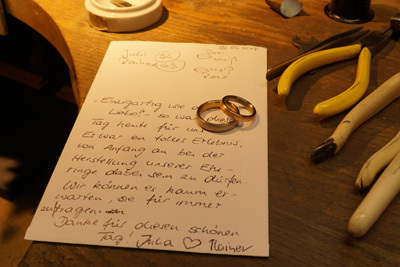 Julia (56)
Rainer (63)
- Einzigartig wie d
Liebe!" - so war dies
Tag heute für uns
Es war ein tolles Erlebnis,
von Anfang an bei der
Herstellung unserer Ehe-
ringe dabei sein zu dürfen
Wir können es kaum er-
warten, sie für immer
zu tragen.
Danke für diesen schönen
Tag! Julia ♡ Rainer